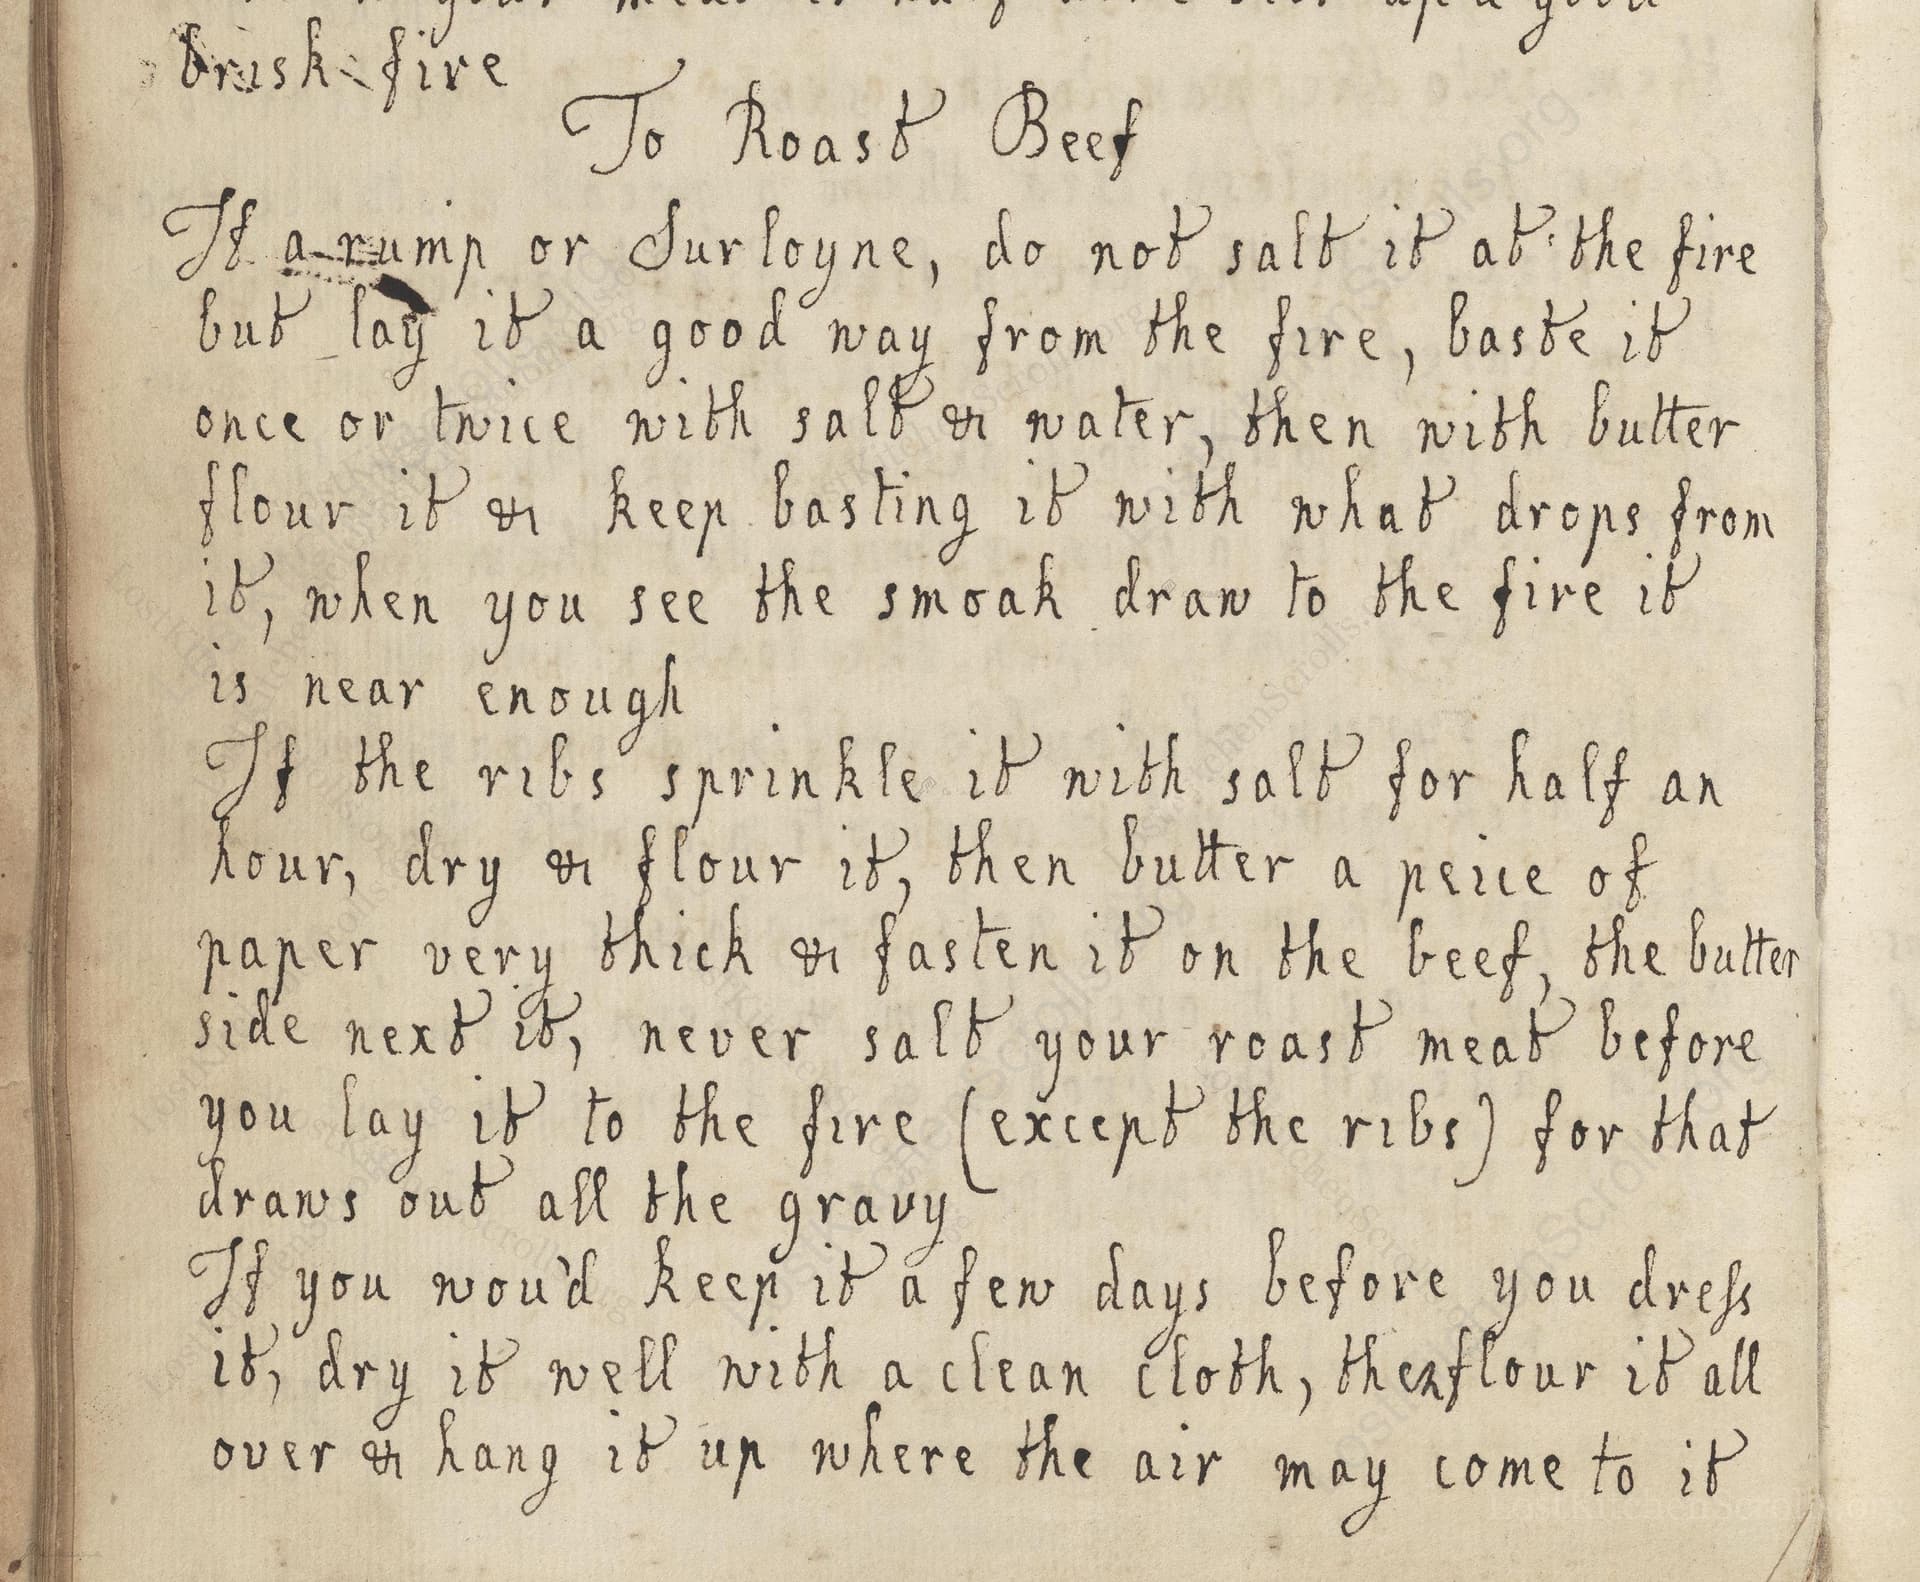 brisk fire
To Roast Beef
If a rump or Surloyne, do not salt it at the fire
but lay it a good way from the fire, baste it
once or twice with salt & water, then with butter
flour it & keep basting it with what drops from
it, when you see the smoak draw to the fire it
is near enough
If the ribs sprinkle it with salt for half an
hour, dry & flour it, then butter a peice of
paper very thick & fasten it on the beef, the butter
side next it, never salt your roast meat before
you lay it to the fire (except the ribs) for that
draws out all the gravy
If you wou'd keep it a few days before you dreſs
it, dry it well with a clean cloth, then flour it all
over & hang it up where the air may come to it